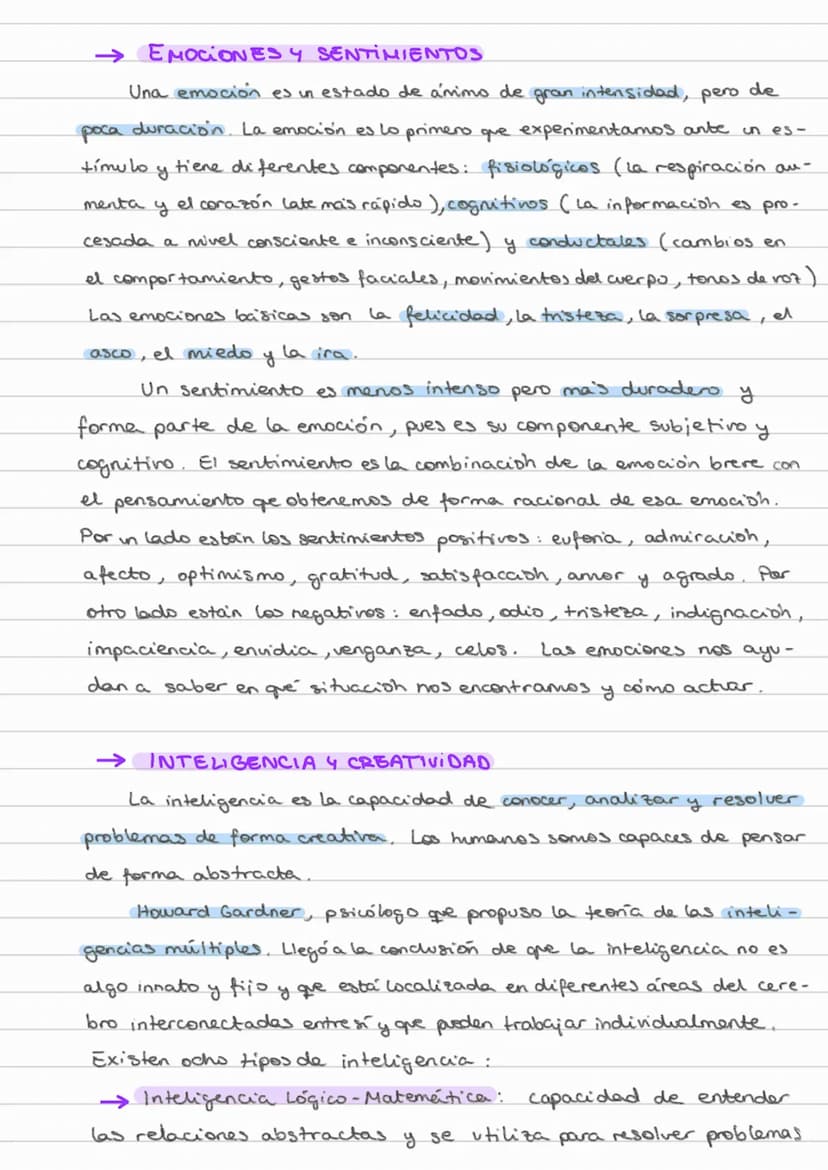 → EMOCIONES Y SENTIMIENTOS
Una emoción es un estado de ánimo de gran intensidad, pero de
poca duración. La emoción es lo primero que experimentamos ante un es-
tímulo y tiene diferentes componentes: fisiológicos (la respiración au-
menta y el corazón late más rápido), cognitivos (la información es pro-
cesada a nivel consciente e inconsciente) y conductales (cambios en
el comportamiento, gestos faciales, movimientos del cuerpo, tonos de voz)
Las emociones básicas son la felicidad, la tristeza, la sorpresa, el
asco, el miedo y la ira.
Un sentimiento es menos intenso pero más duradero y
forma parte de la emoción, pues es su componente subjetivo y
cognitivo. El sentimiento es la combinación de la emoción breve con
el pensamiento que obtenemos de forma racional de esa emoción.
Por un lado están los sentimientos positivos: euforia, admiración,
afecto, optimismo, gratitud, satisfacción, amor y agrado. Por
otro lado están los negativos: enfado, odio, tristeza, indignación,
impaciencia, envidia, venganza, celos. Las emociones nos ayu-
dan a saber en qué situación nos encontramos y cómo actuar.
→ INTELIGENCIA Y CREATIVIDAD
La inteligencia es la capacidad de conocer, analizar y resolver
problemas de forma creativa. Los humanos somos capaces de pensar
de forma abstracta.
Howard Gardner, psicólogo que propuso la teoría de las inteli-
gencias múltiples. Llegó a la conclusión de que la inteligencia no es
algo innato y fijo y que está localizada en diferentes áreas del cere-
bro interconectadas entre sí y que pueden trabajar individualmente.
Existen ocho tipos de inteligencia:
→ Inteligencia Lógico-Matemática: capacidad de entender
las relaciones abstractas y se utiliza para resolver problemas